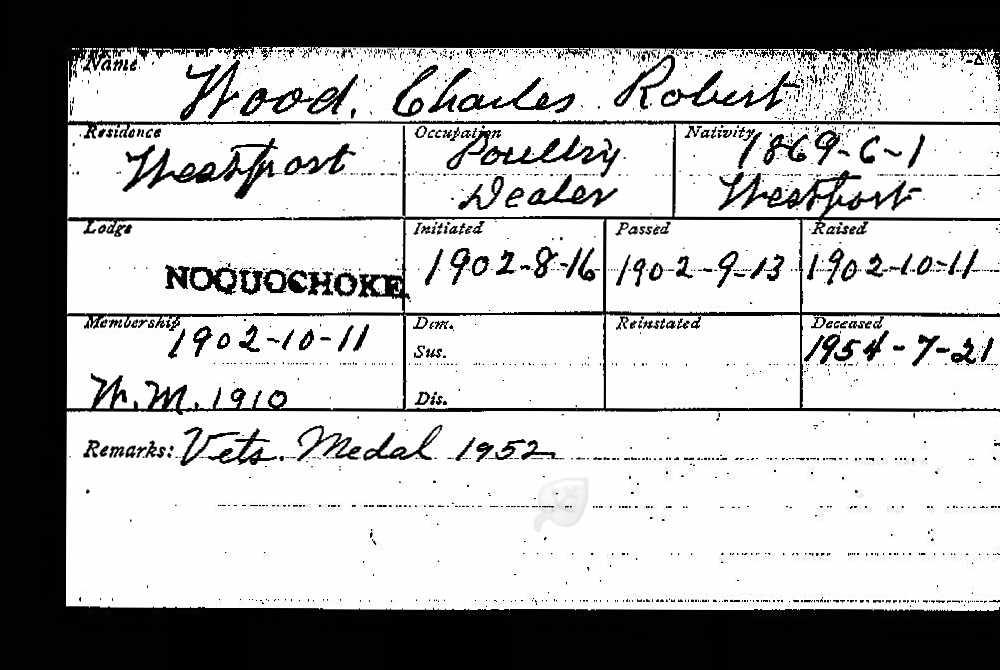 Name Wood, Charles Robert
Residence Occupation Nativity
Westport Poultry 1869-6-1
Dealer Westport
Lodge Initiated Passed Raised
NOQUOCHOKE 1902-8-16 1902-9-13 1902-10-11
Membership 1902-10-11 Dim. Reinstated Deceased
Sus. 1954-7-21
W.M. 1910 Dis.
Remarks: Vets. Medal 1952